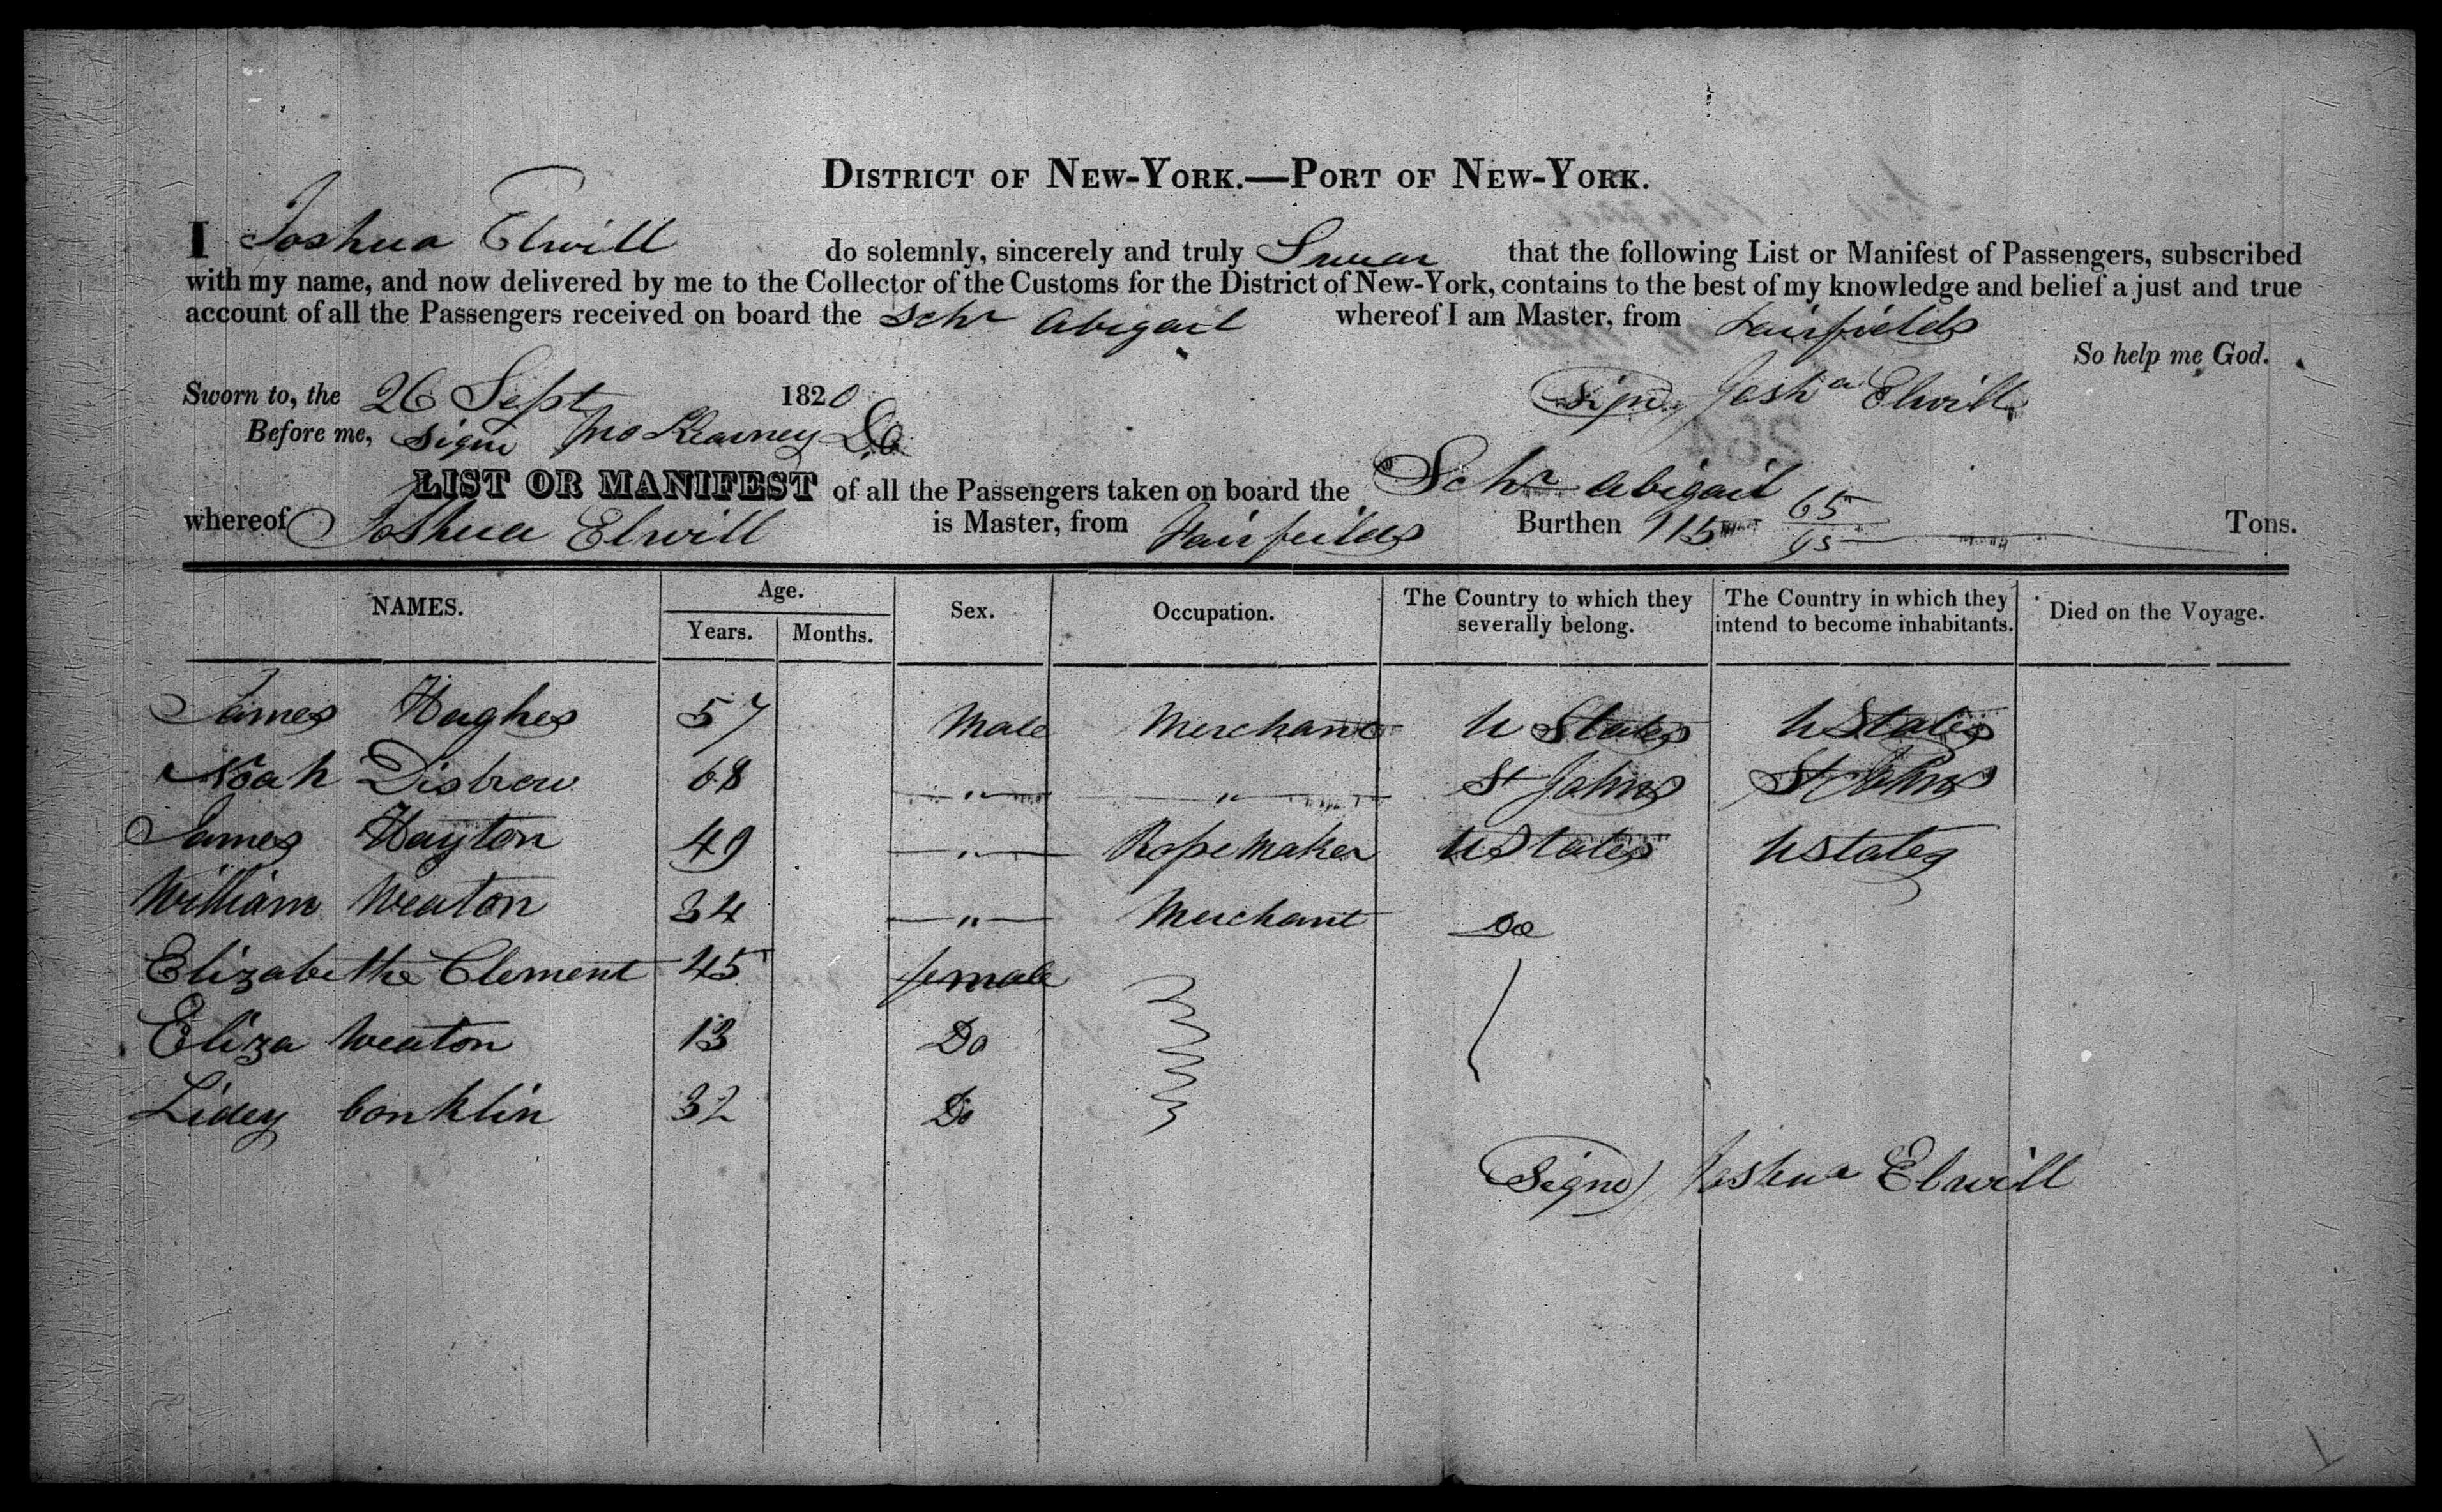 DISTRICT OF NEW-YORK.—PORT OF NEW-YORK.
I Joshua Elwill do solemnly, sincerely and truly Swear that the following List or Manifest of Passengers, subscribed
with my name, and now delivered by me to the Collector of the Customs for the District of New-York, contains to the best of my knowledge and belief a just and true
account of all the Passengers received on board the Schr Abigail whereof I am Master, from Fairfields
So help me God.
Sworn to, the 26 Sept 1820 Signd Josha Elwill
Before me, Signd Jno Kearney
LIST OR MANIFEST of all the Passengers taken on board the Schr Abigail
whereof Joshua Elwill is Master, from Fairfields Burthen 115 65/95 Tons.
NAMES. Age. Years. Months. Sex. Occupation. The Country to which they severally belong. The Country in which they intend to become inhabitants. Died on the Voyage.
James Hughes 57 Male Merchant U States U States
Noah Disbrow 68 " " St Johns St Johns
James Hayton 49 " RopeMaker U States U States
William Weaton 34 " Merchant Do
Elizabethe Clement 45 female
Eliza Weaton 13 Do
Lidey Conklin 32 Do
Signd Joshua Elwill